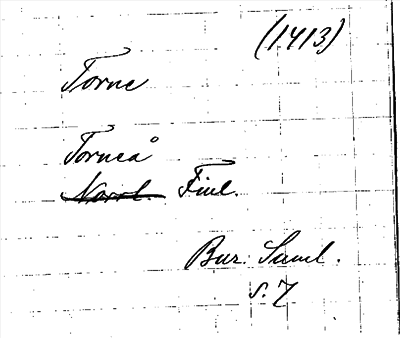 (1413)
Torne
Torneå
Norrl. Finl.
Bur. Saml.
s. 7